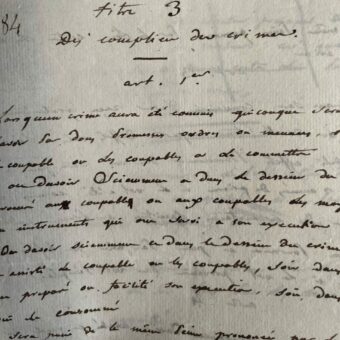 84
titre 3
Des complices des crimes.
art. 1er
Lorsqu'un crime aura été commis quiconque sera
d'avoir par dons promesses ordres ou menaces,
le coupable ou les coupables a le commettre
ou d'avoir sciemment et dans le dessein du
coupable ou aux coupables des moy
instruments qui ont servi a son execution
Ou d'avoir sciemment et dans le dessein du crime
le coupable ou les coupables, soit dans
préparé ou facilité son execution, soit dans
qui l'a consommé
sera puni de la même peine prononcée par la